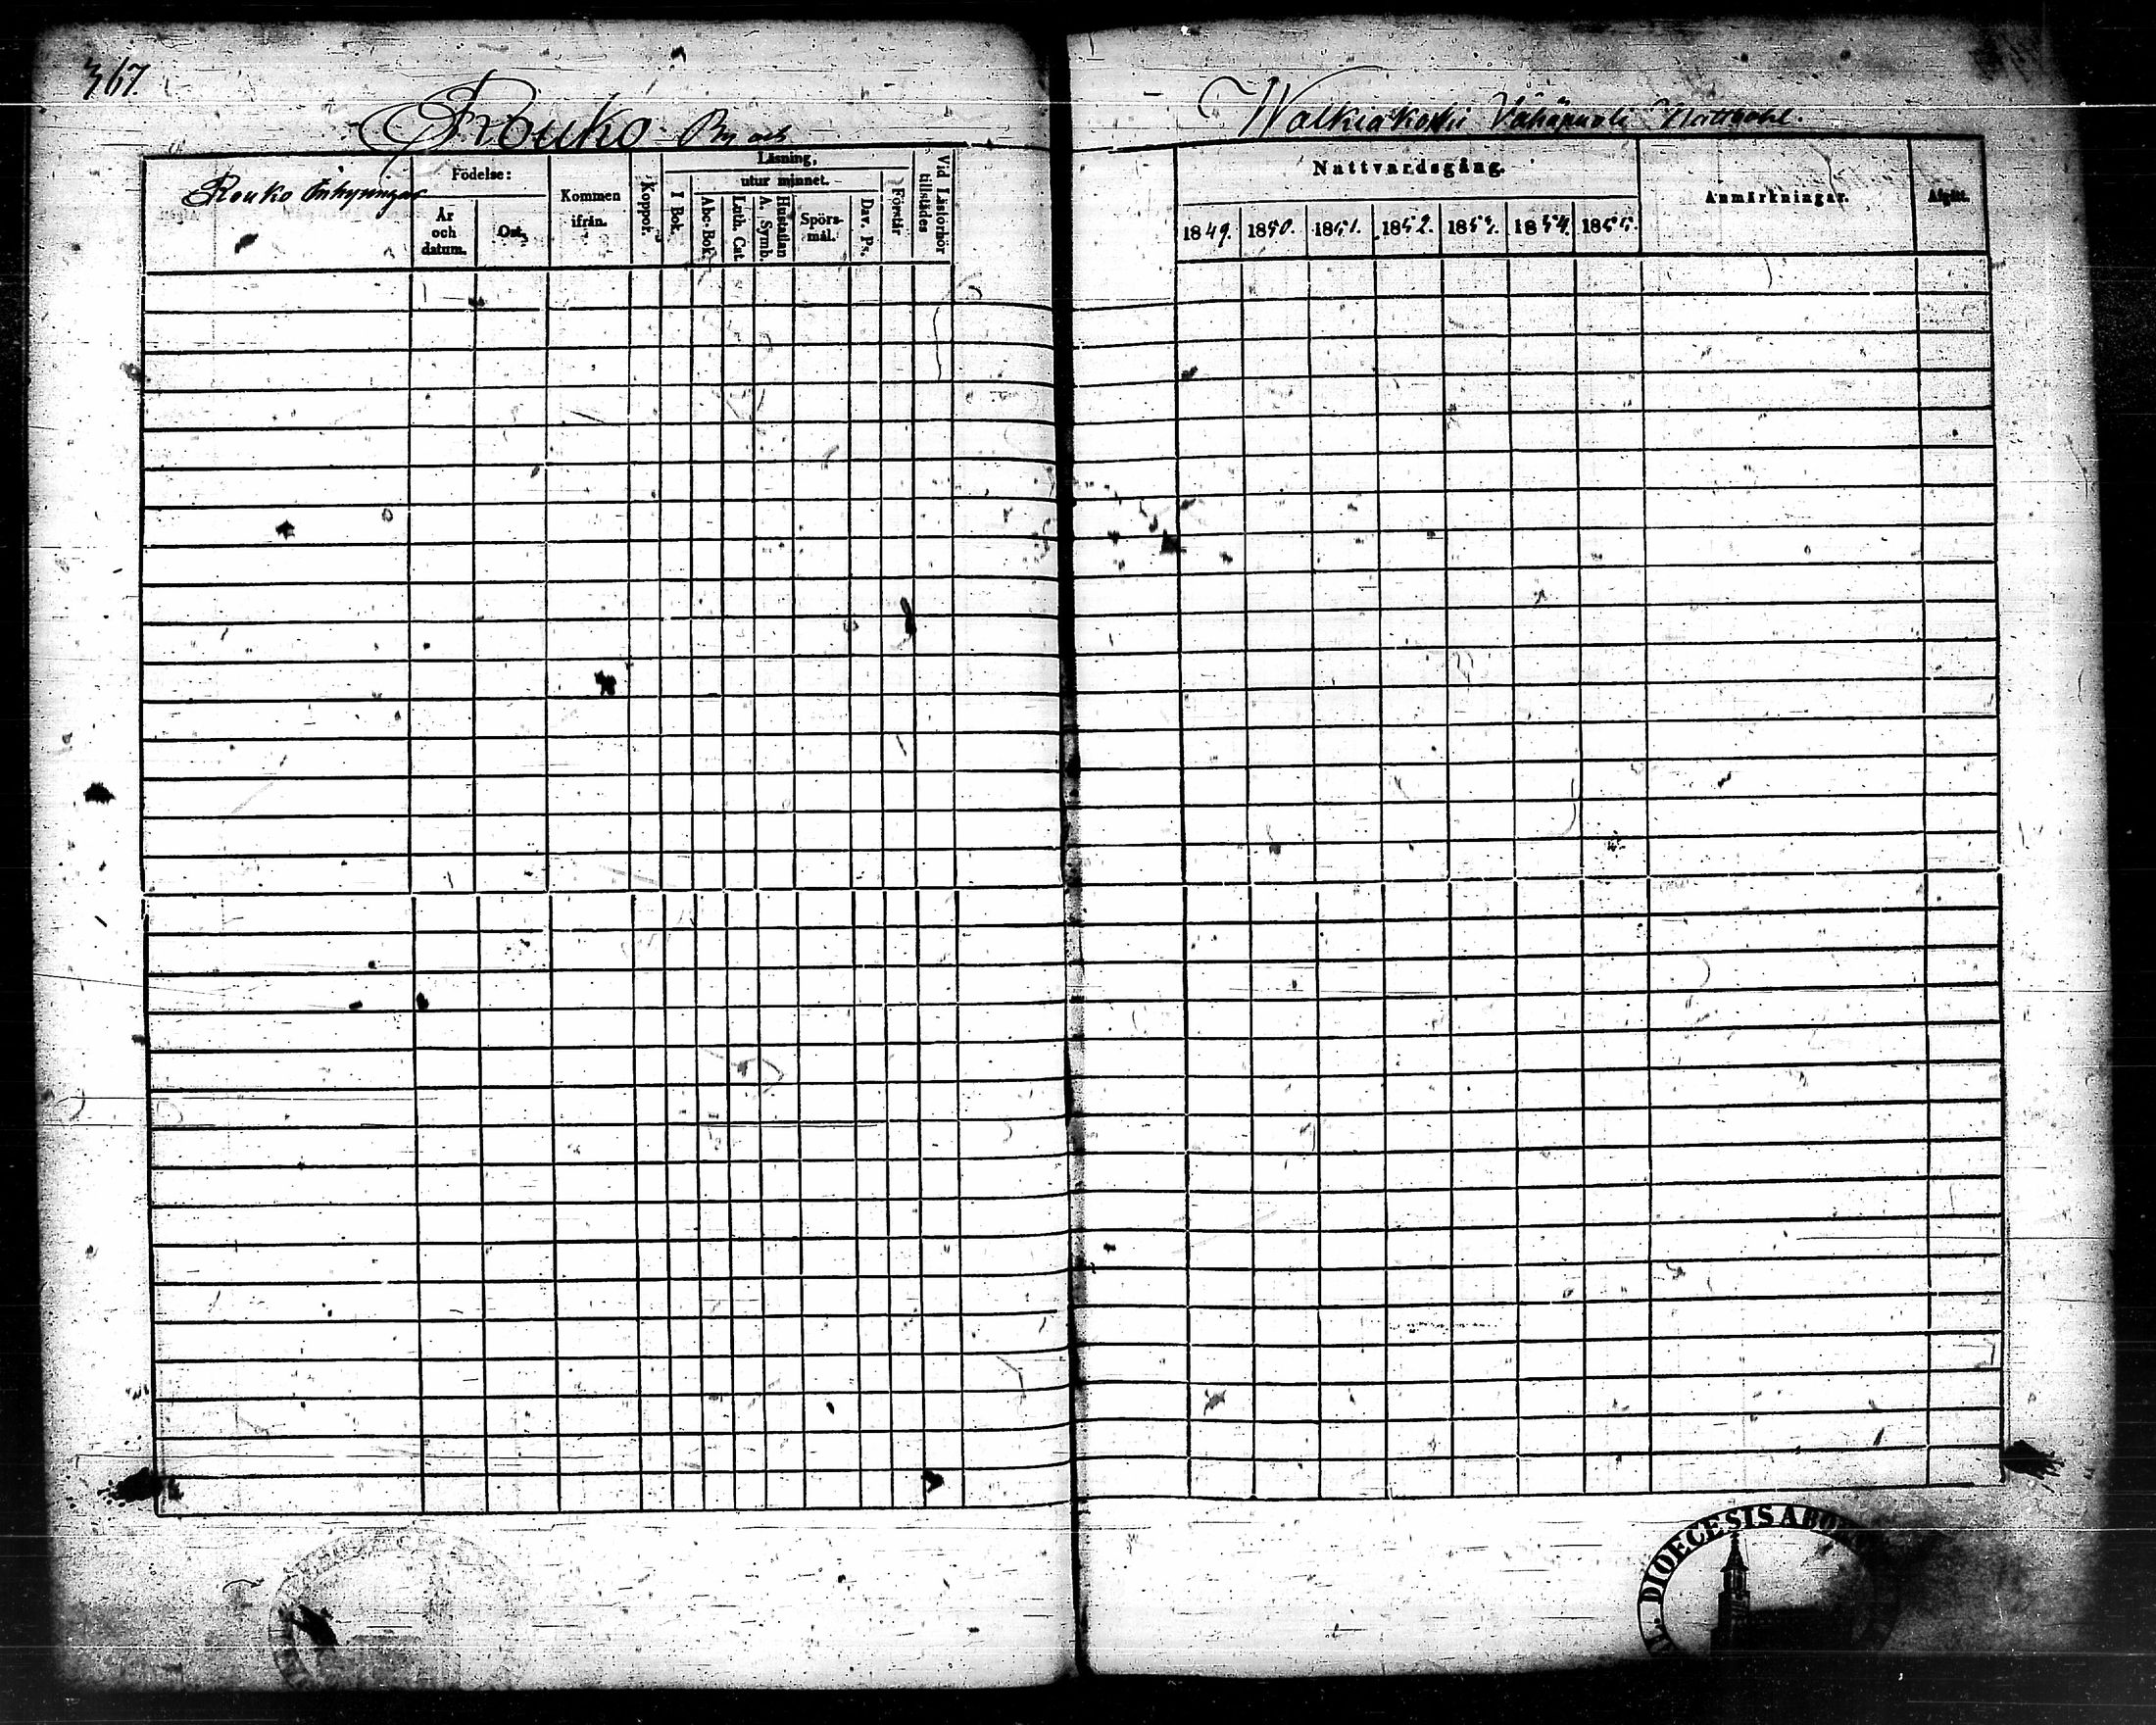 367
Rouko By och
Walkiakoski Vähäpuoli
Rouko Inhysingar
Födelse:
År och datum.
Ort.
Kommen ifrån.
Koppor.
Läsning,
I Bok.
utur minnet.
Abc-Bok.
Luth. Cat.
Hustaflan A. Symb.
Spörsmål.
Dav. Ps.
Förstår
Vid Läsförhör tillstädes
Nattvardsgång.
1849. 1850. 1851. 1852. 1853. 1854. 1855.
Anmärkningar.
Afgått.
DIOECESIS ABOENSIS